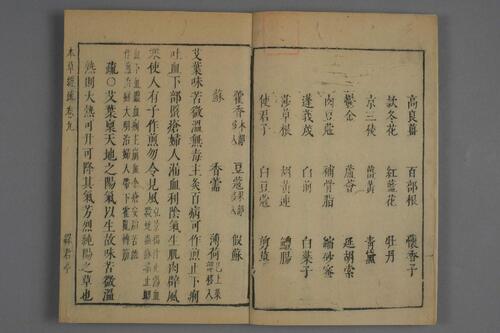 高良薑 百部根 懷香子
款冬花 紅藍花 牡丹
京三稜 薑黃 青黛
鬱金 蘆薈 延胡索
肉豆蔻 補骨脂 縮砂蜜
蓬莪茂 白前
莎草根 胡黃連 鱧腸
使君子 白豆蔻 剪草
藿香 豆蔻 假蘇
蘇 香薷 薄荷
艾葉味苦微溫無毒主灸百病可作煎止下痢
吐血下部䘌瘡婦人漏血利陰氣生肌肉辟風
寒使人有子作煎勿令見風
疏艾葉稟天地之陽氣以生故味苦微溫
熱則大熱可升可降其氣芳烈純陽之草也
本草經疏卷九